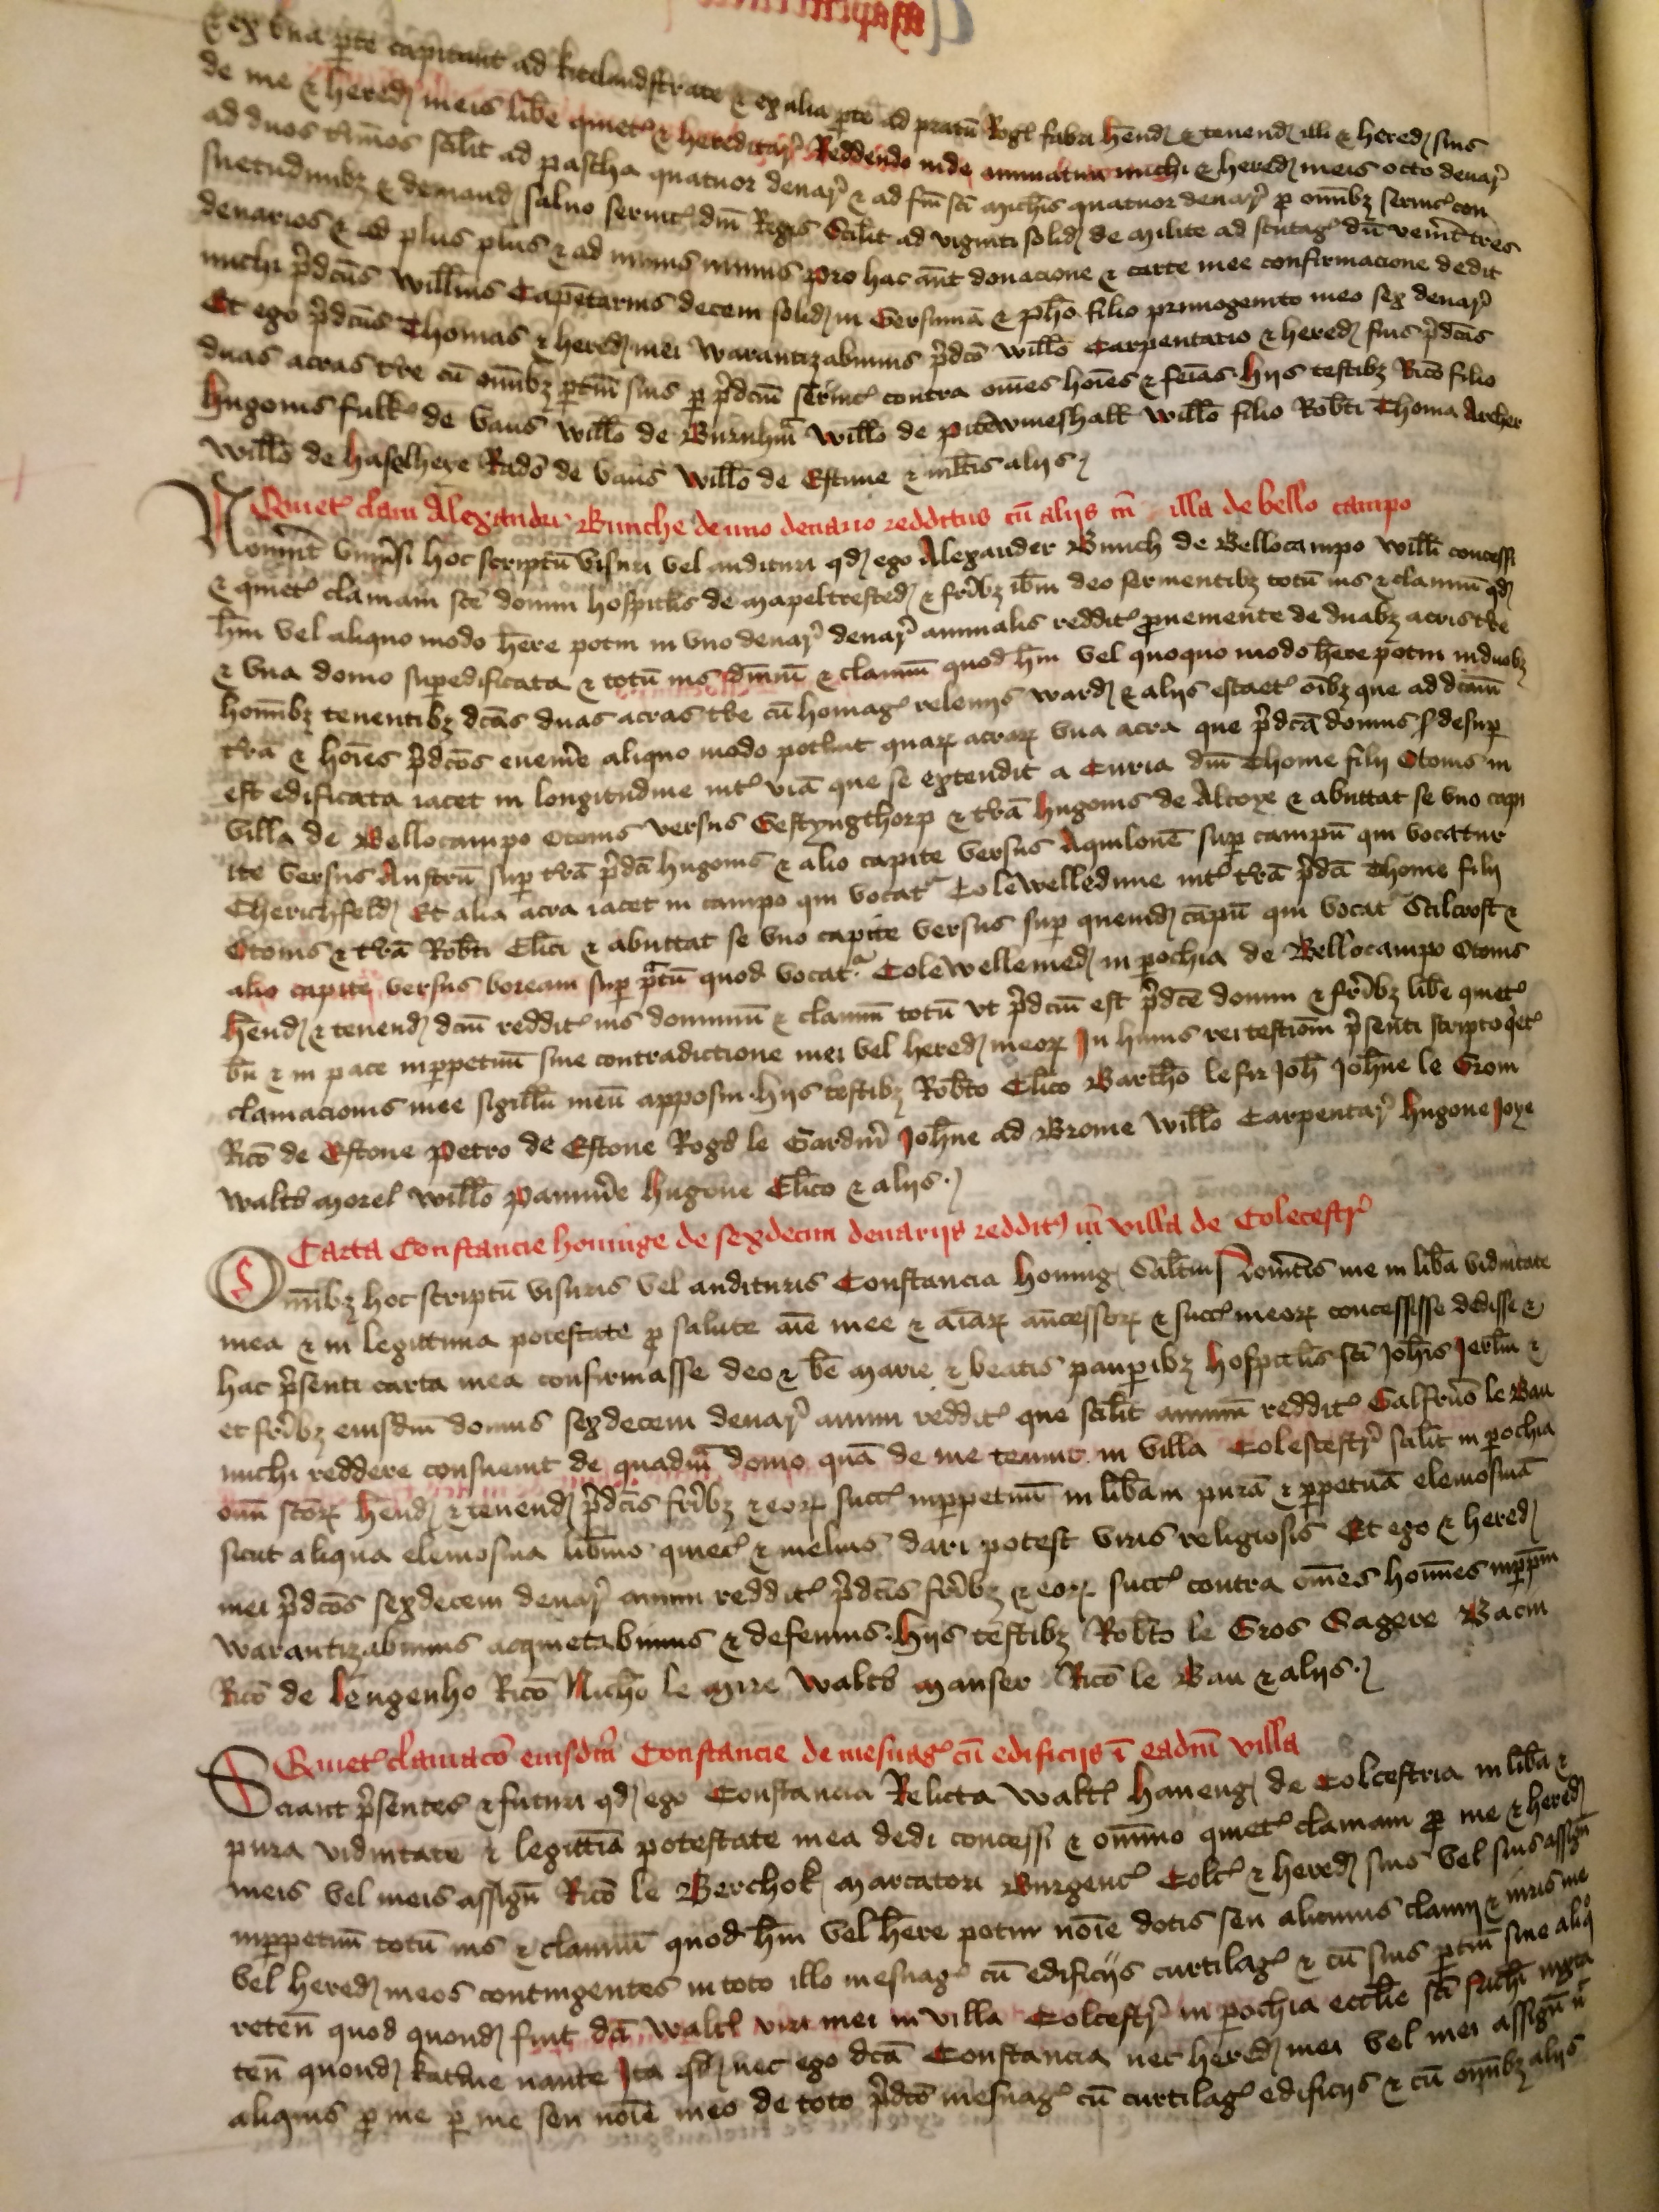 & ex una pte capitant ad kitelundstrate & ex alia pte ad pratū Rogi fabri hēnd & tenend illi & hered suis
de me & hered meis libe quiet & hereditar Reddendo inde annuatim michi & hered meis octo denar
ad duos tmīos scilit ad pascha quatuor denar & ad fm sci michis quatuor denar p omībz seruic con
suetudinibz & demand saluo seruic dni Regis Scilit ad viginti solid de milite ad scutag dū venit tres
denarios & ad plus plus & ad minus minus pro hac aut donacione & carte mee confirmacione dedit
michi pdcus Willms Carpētarius decem solid in Gersumā & pho filio primogenito meo sex denar
Et ego pdcus Thomas & hered mei Warantizabimus pdco willo Carpentario & hered suis pdcas
duas acras tre cū omībz ptin suis p pdcm seruic contra oēs hoies & feias hiis testibz Rico filio
hugonis fulk de Vaus willo de Burnhm Willo de pitewineshall willo filio Robti Thoma Archer
Willo de haselhere Rado de Vaus Willo de Estune & mltis aliis
Quiet clam Alexandri Bunche de uno denario redditus cū aliis in illa de bello campo
Noverint vniusi hoc scriptū visuri vel audituri qd ego Alexander Bunch de Bellocampo Willi concessi
& quiet clamaui sce domui hospitlis de mapeltrested & fribz ibm deo seruientibz totū ius & clamiū qd
hui vel aliquo modo here potui in vno denar denar annualis reddit pueniente de duabz acris tre
& vna domo supedificata & totū ius dniū & clamiū quod hui vel quoquo modo here potui in duobz
hoinibz tenentibz dcas duas acras tre cū homag releuiis ward & aliis escaet oibz que ad dcam
trā & hoies pdcos euenire aliquo modo potunt quaR acraR vna acra que pdca domus desup
est edificata iacet in longitudine int viā que se extendit a Curia dni Thome filii Otonis in
villa de Bellocampo Otonis versus Gestyngthorp & trā hugonis de Alcoye & abuttat se vno capi
ite versus Austrū sup trā pdcā hugonis & alio capite versus Aquilonē sup campū qui vocatur
Cherichfeld Et alia acra iacet in campo qui vocat Colewelledune int trā pdcā Thome filii
Otonis & trā Robti Clici & abuttat se vno capite versus sup quend cāpū qui vocat Stilcroft &
alio capite versus boream sup ptū quod vocat Colewellemed in pochia de Bellocampo Otonis
hēnd & tenend dcm reddit ius dominiū & clamiū totū vt pdcm est pdce domui & fribz libe quiet
bn & in pace inppetuū sine contradictione mei vel hered meoR In huius rei testiom psenti scripto qiet
clamacionis mee sigillū meū apposui hiis testibz Robto Clico Bartho le fir Joh Johne le Grom
Rico de Estone Petro de Estone Rogo le Gardin Johne ad Brome Willo Carpentar hugone Joye
Walto morel Willo paumde hugone Clico & aliis
Carta Constancie houinge de sexdecim denariis reddit in villa de Colecestr
Omībz hoc scriptū visuris vel audituris Constancia houing Saltm Noueritis me in liba viduitate
mea & in legittima potestate p salute aie mee & aīaR ancessoR & succ meoR concessisse dedisse &
hac psenti carta mea confirmasse deo & be marie & beatis paupibz hospitlis sci Johis Jerlm &
et fribz eiusdm domus sexdecem denar annui reddit que scilit annuū reddit Galfrus le Bau
michi reddere consueuit de quadm domo quā de me tenuit in villa Colecestr scilit in pochia
omī scoR hēnd & tenend pdcis fribz & eoR succ inppetuū in libam purā & ppetuā elemosinā
sicut aliqua elemosina libius quiec & melius dari potest viris religiosis Et ego & hered
mei pdcos sexdecem denar annui reddit pdcis fribz & eoR succ contra omēs homines inppm
warantizabimus acquietabimus & defenimus hiis testibz Robto le Gros Sagere Bacin
Rico de lengenho Rico Nicho le mire Walto manser Rico le Bau & aliis
Quiet clamaco eiusdm Constancie de mesuag cū edificiis ī eadm villa
Sciant psentes & futuri qd ego Constancia Relicta Walti haueng de Colcestria in liba &
pura viduitate & legittia potestate mea dedi concessi & omīno quiet clamaui p me & hered
meis vel meis assign Rico le Berchok marcatori Burgenc Colc & hered suis vel suis assign
inppetuū totū ius & clamiū quod hui vel here potui noie dotis seu alicuius clamii & iuris me
vel hered meos contingentes in toto illo mesuag cū edificiis curtilag & cū suis ptin sine aliq
reten quod quond fuit dci Walti viri mei in villa Colcestr in pochia ecclie sci iuxta
ten quond katine nante Ita qd nec ego dca Constancia nec hered mei vel mei assign n
aliquis p me p me seu noie meo de toto pdco mesuag cū curtilag edificiis & cū omībz aliis